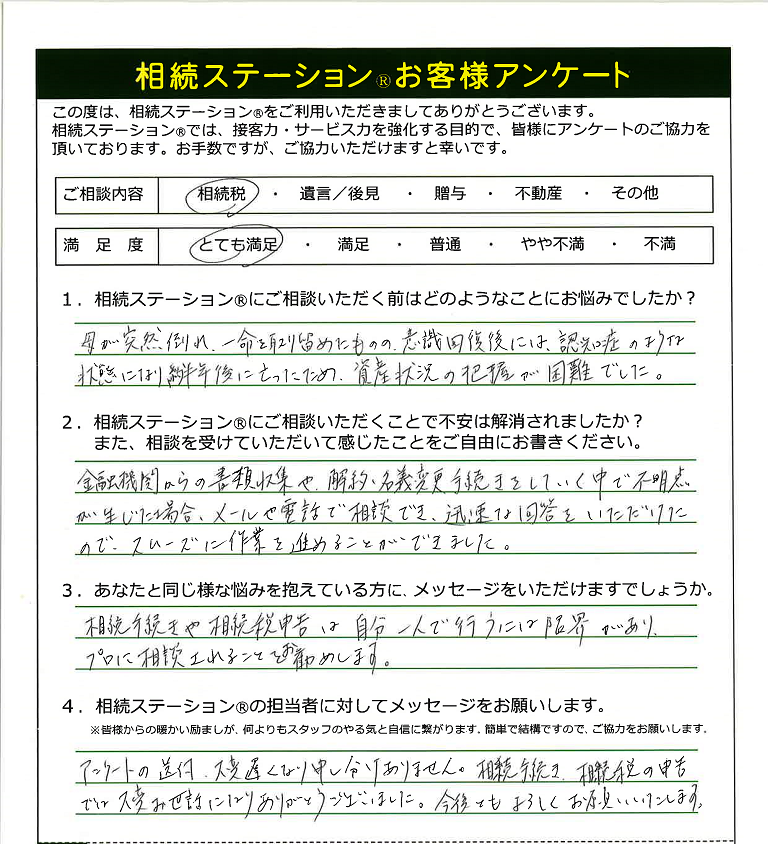 相続ステーション®お客様アンケート
この度は、相続ステーション®をご利用いただきましてありがとうございます。
相続ステーション®では、接客力・サービス力を強化する目的で、皆様にアンケートのご協力を
頂いております。お手数ですが、ご協力いただけますと幸いです。
ご相談内容 相続税 ・ 遺言／後見 ・ 贈与 ・ 不動産 ・ その他
満足度 とても満足 ・ 満足 ・ 普通 ・ やや不満 ・ 不満
1．相続ステーション®にご相談いただく前はどのようなことにお悩みでしたか？
母が突然倒れ、一命を取り留めたものの、意識回復後には、認知症のような
状態になり約半年後に亡ったため、資産状況の把握が困難でした。
2．相続ステーション®にご相談いただくことで不安は解消されましたか？
また、相談を受けていただいて感じたことをご自由にお書きください。
金融機関からの書類収集や、解約・名義変更手続きをしていく中で不明点
が生じた場合、メールや電話で相談でき、迅速な回答をいただけた
ので、スムーズに作業を進めることができました。
3．あなたと同じ様な悩みを抱えている方に、メッセージをいただけますでしょうか。
相続手続きや相続税申告は自分一人で行うには限界があり、
プロに相談されることをお勧めします。
4．相続ステーション®の担当者に対してメッセージをお願いします。
※皆様からの暖かい励ましが、何よりもスタッフのやる気と自信に繋がります。簡単で結構ですので、ご協力をお願いします。
アンケートの送付、大変遅くなり申し分けありません。相続手続き、相続税の申告
では大変お世話になりありがとうございました。今後ともよろしくお願いいたします。